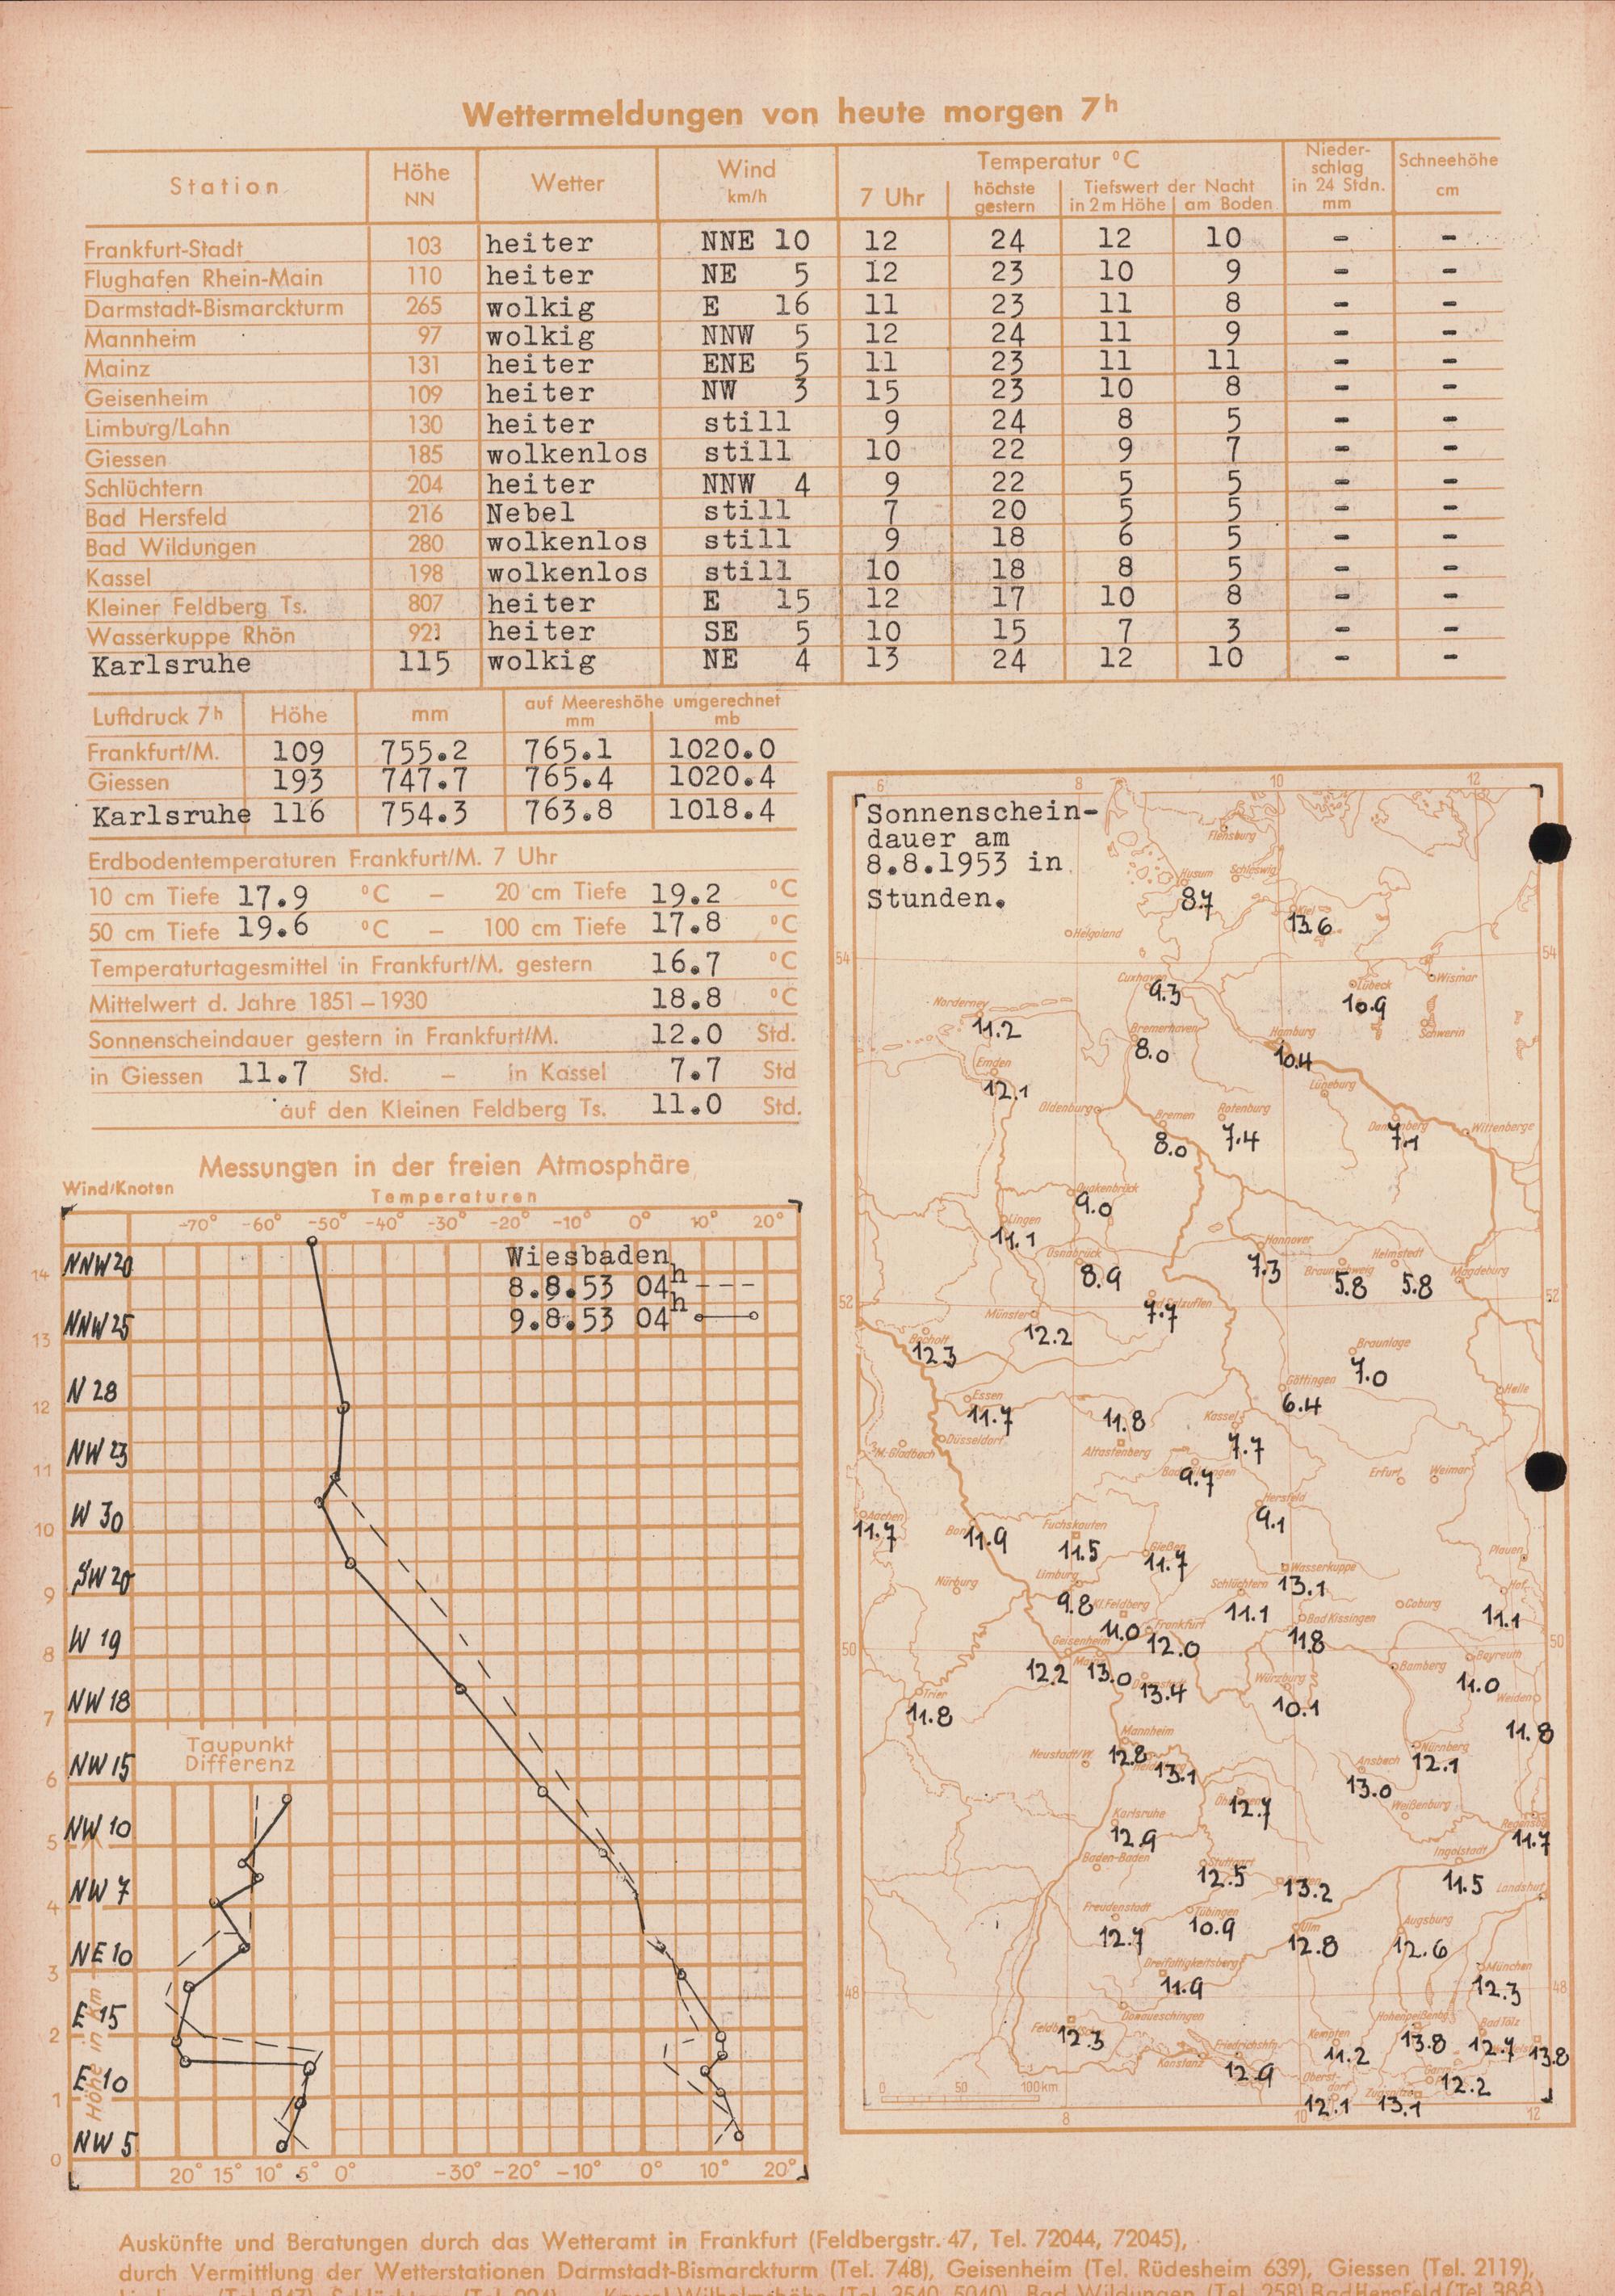 Wettermeldungen von heute morgen 7h
Station Höhe NN Wetter Wind km/h Temperatur °C Nieder-schlag in 24 Stdn. mm Schneehöhe cm
7 Uhr höchste gestern Tiefswert der Nacht in 2m Höhe am Boden
Frankfurt-Stadt 103 heiter NNE 10 12 24 12 10 - -
Flughafen Rhein-Main 110 heiter NE 5 12 23 10 9 - -
Darmstadt-Bismarckturm 265 wolkig E 16 11 23 11 8 - -
Mannheim 97 wolkig NNW 5 12 24 11 9 - -
Mainz 131 heiter ENE 5 11 23 11 11 - -
Geisenheim 109 heiter NW 3 15 23 10 8 - -
Limburg/Lahn 130 heiter still 9 24 8 5 - -
Giessen 185 wolkenlos still 10 22 9 7 - -
Schlüchtern 204 heiter NNW 4 9 22 5 5 - -
Bad Hersfeld 216 Nebel still 7 20 5 5 - -
Bad Wildungen 280 wolkenlos still 9 18 6 5 - -
Kassel 198 wolkenlos still 10 18 8 5 - -
Kleiner Feldberg Ts. 807 heiter E 15 12 17 10 8 - -
Wasserkuppe Rhön 921 heiter SE 5 10 15 7 3 - -
Karlsruhe 115 wolkig NE 4 13 24 12 10 - -
Luftdruck 7h Höhe mm auf Meereshöhe umgerechnet mm mb
Frankfurt/M. 109 755.2 765.1 1020.0
Giessen 193 747.7 765.4 1020.4
Karlsruhe 116 754.3 763.8 1018.4
Erdbodentemperaturen Frankfurt/M. 7 Uhr
10 cm Tiefe 17.9 °C – 20 cm Tiefe 19.2 °C
50 cm Tiefe 19.6 °C – 100 cm Tiefe 17.8 °C
Temperaturtagesmittel in Frankfurt/M. gestern 16.7 °C
Mittelwert d. Jahre 1851–1930 18.8 °C
Sonnenscheindauer gestern in Frankfurt/M. 12.0 Std.
in Giessen 11.7 Std. – in Kassel 7.7 Std
auf den Kleinen Feldberg Ts. 11.0 Std.
Messungen in der freien Atmosphäre
Wind/Knoten Temperaturen
-70° -60° -50° -40° -30° -20° -10° 0° 10° 20°
Wiesbaden
8.8.53 04h ---
9.8.53 04h
14 NNW 20
13 NNW 25
12 N 28
11 NW 23
10 W 30
9 SW 20
8 W 19
7 NW 18
Taupunkt
Differenz
6 NW 15
5 NW 10
4 NW 7
3 NE 10
2 E 15
1 E 10
0 NW 5
Höhe in km
20° 15° 10° 5° 0° -30° -20° -10° 0° 10° 20°
6 8 10 12
Sonnenschein-
dauer am
8.8.1953 in
Stunden.
Flensburg
Husum 8.7 Schleswig
Kiel 13.6
Helgoland
54 54
Cuxhaven 9.3
Lübeck 10.9 Wismar
Norderney 11.2
Bremerhaven 8.0
Hamburg 10.4
Schwerin
Emden 12.1
Lüneburg
Oldenburg
Bremen 8.0
Rotenburg 7.4
Dannenberg 7.1
Wittenberge
Quakenbrück 9.0
Lingen 11.1
Osnabrück 8.9
Hannover 7.3
Braunschweig 5.8
Helmstedt 5.8
Magdeburg
52 52
Münster 12.2
Bad Salzuflen 7.7
Bocholt 12.3
Braunlage 7.0
Göttingen 6.4
Halle
Essen 11.7
Düsseldorf
M.-Gladbach
11.8 Altastenberg
Kassel 7.7
Bad Wildungen 9.7
Erfurt Weimar
Hersfeld 9.1
Aachen 11.7
Bonn 11.9
Fuchskauten 11.5
Gießen 11.7
Plauen
Nürburg
Limburg 9.8
Schlüchtern 11.1
Wasserkuppe 13.1
Kl.Feldberg 11.0
Frankfurt 12.0
Bad Kissingen 11.8
Coburg
Hof 11.1
50 50
Geisenheim 12.2
Mainz 13.0
Darmstadt 13.4
Würzburg 10.1
Bamberg
Bayreuth 11.0
Trier 11.8
Weiden 11.8
Mannheim 12.8
Neustadt/W.
Heidelberg 13.1
Nürnberg 12.1
Ansbach 13.0
Öhringen 12.7
Weißenburg
Karlsruhe 12.9
Regensburg 11.7
Baden-Baden
Stuttgart 12.5
13.2
Ingolstadt 11.5
Landshut
Freudenstadt 12.7
Tübingen 10.9
Ulm 12.8
Augsburg 12.6
Dreifaltigkeitsberg 11.9
München 12.3
48 48
Feldberg 12.3
Donaueschingen
Konstanz
Friedrichshfn. 12.9
Kempten 11.2
Hohenpeißenbg. 13.8
Bad Tölz 12.7
13.8
Garm. 12.2
Oberst-dorf 12.1
Zugspitze 13.1
0 50 100km
8 10 12
Auskünfte und Beratungen durch das Wetteramt in Frankfurt (Feldbergstr. 47, Tel. 72044, 72045),
durch Vermittlung der Wetterstationen Darmstadt-Bismarckturm (Tel. 748), Geisenheim (Tel. Rüdesheim 639), Giessen (Tel. 2119),